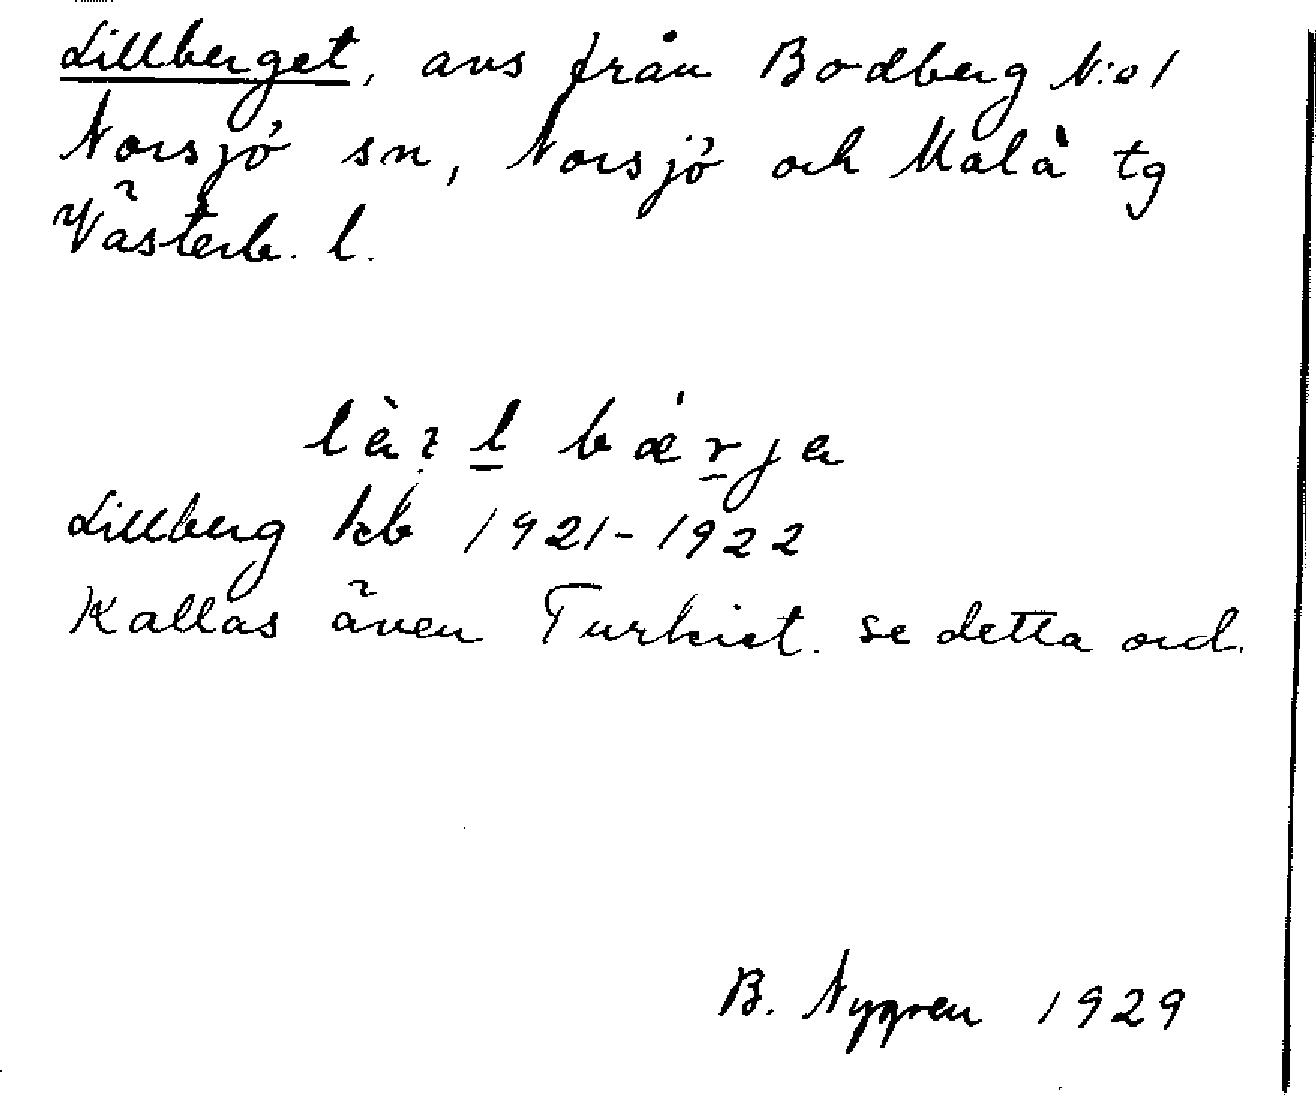 Lillberget, avs från Bodberg N:o 1
Norsjö sn, Norsjö och Malå tg
Västerb. l.
bærja
Lillberg kb 1921-1922
Kallas även Turkiet. se detta ord.
B. Nygren 1929